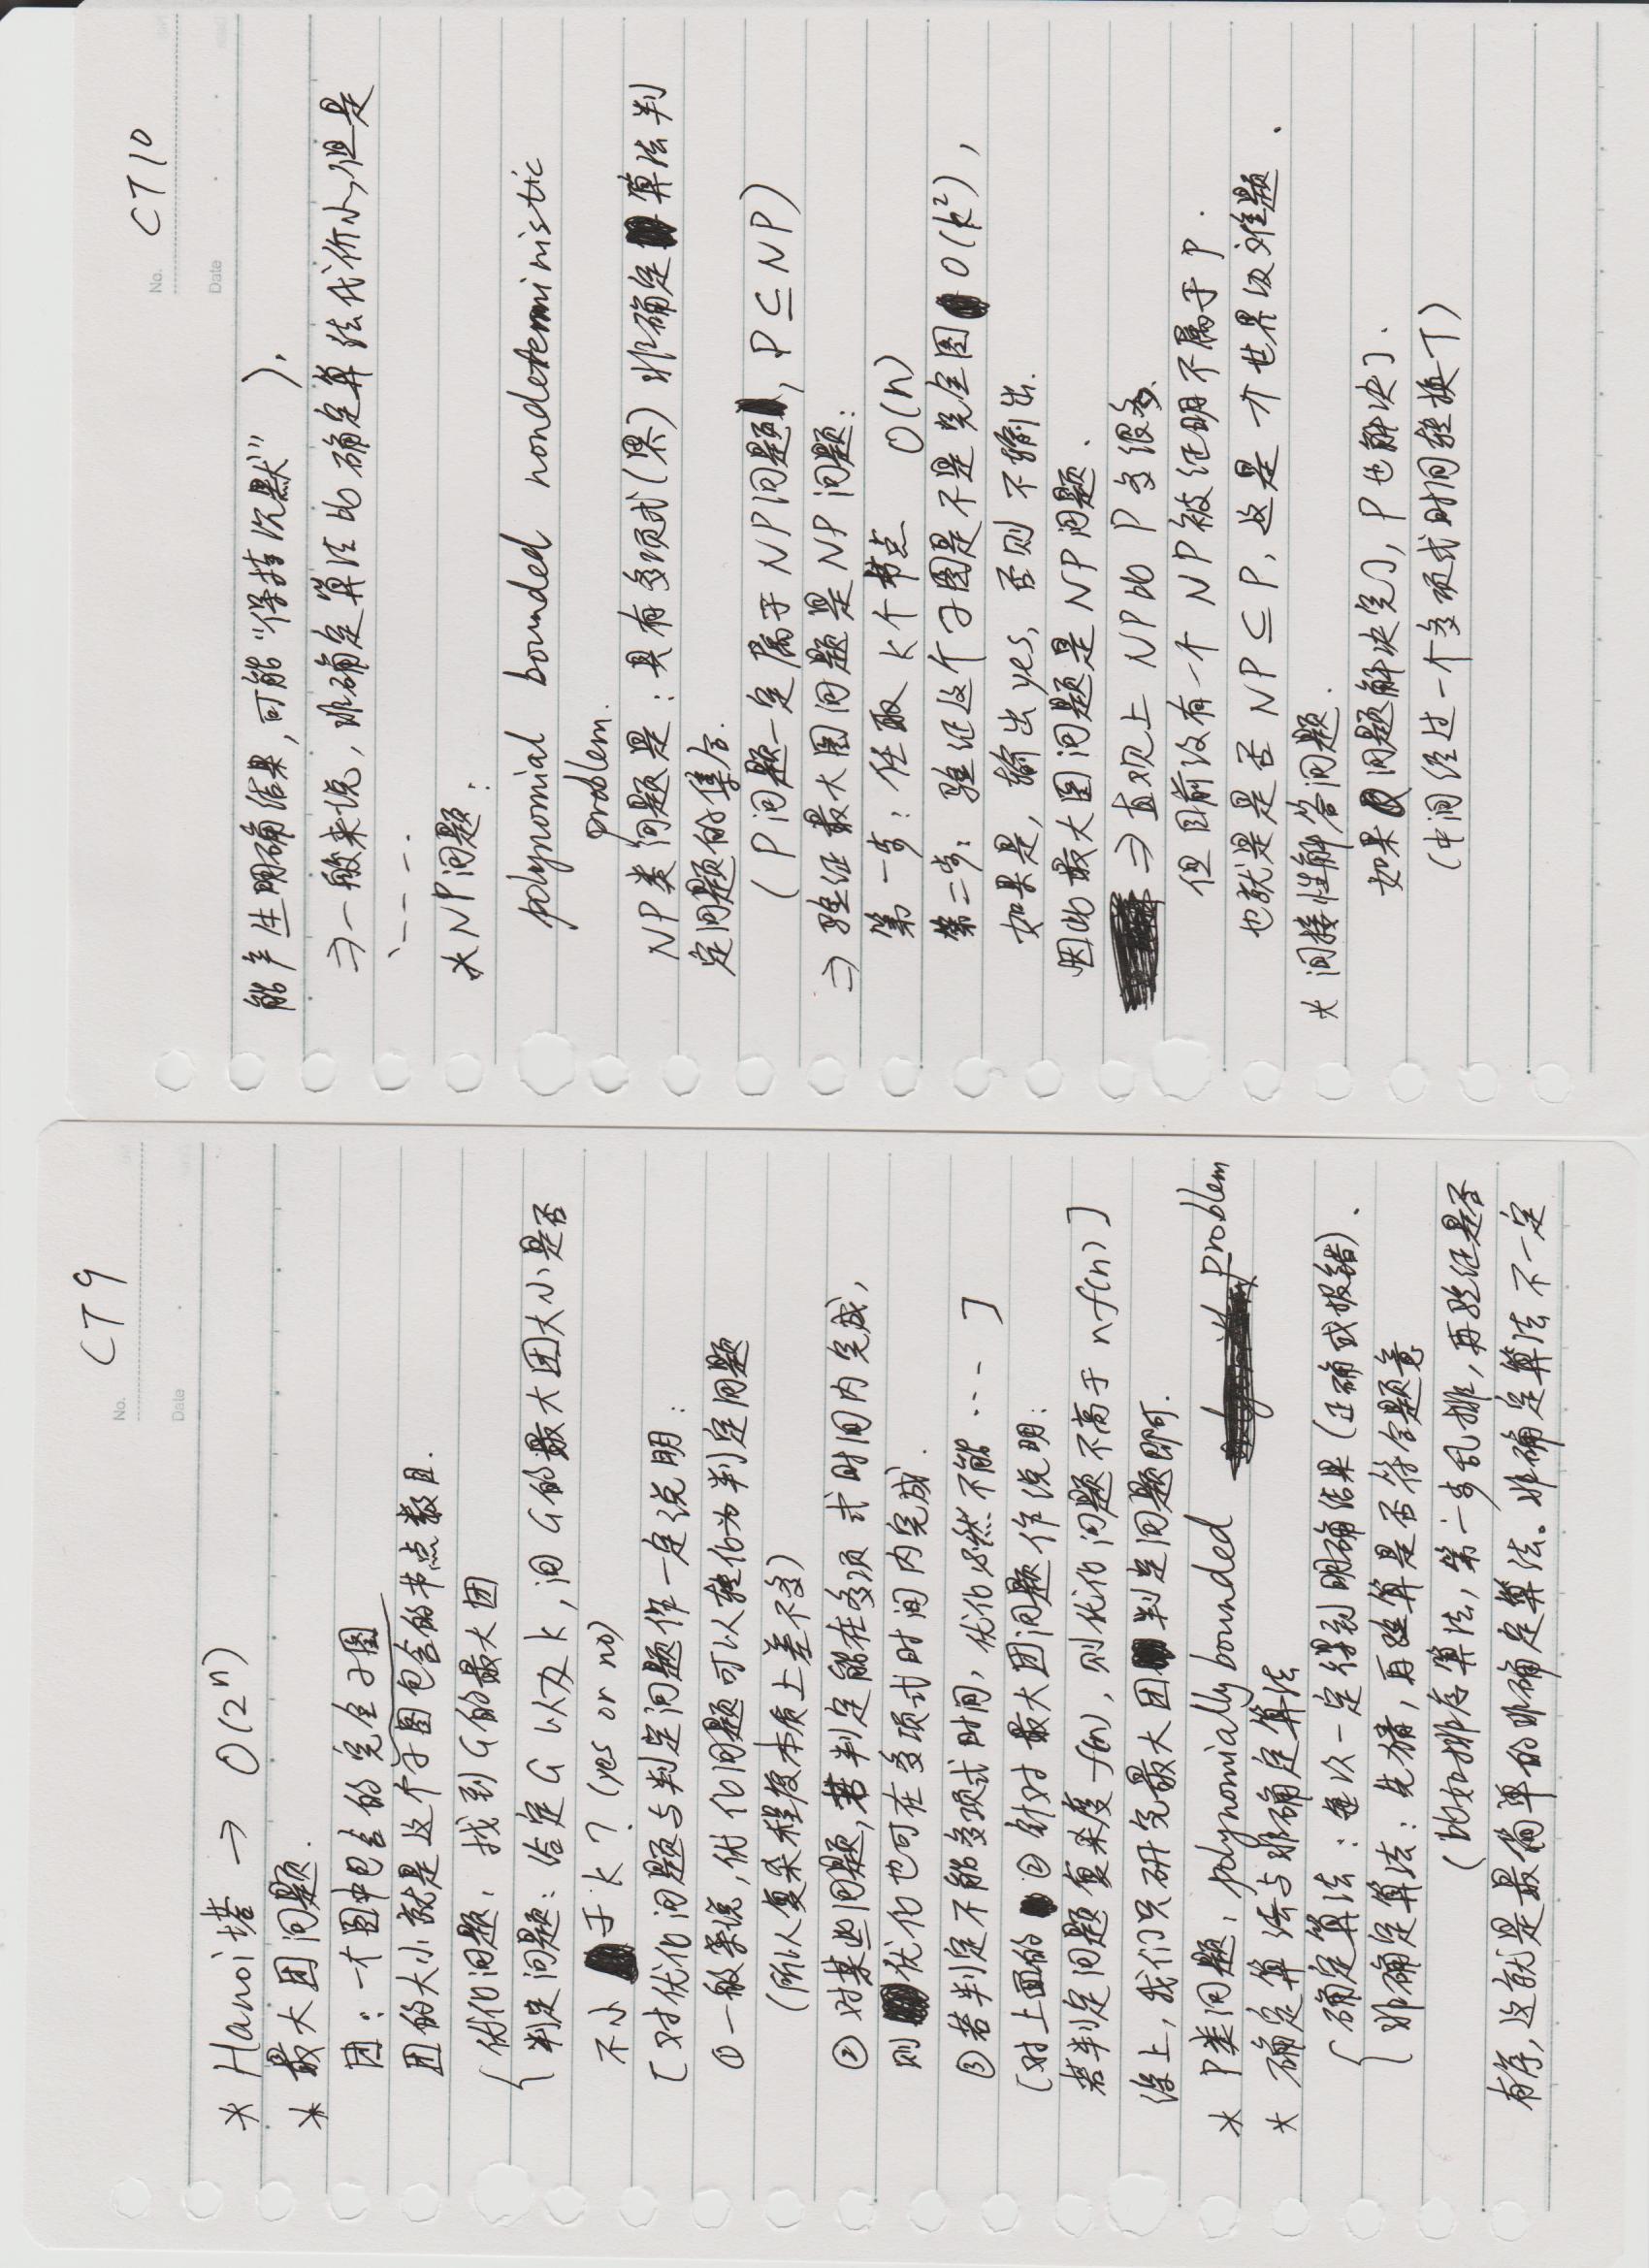 No. CT9
Date
* Hanoi塔 → O(2ⁿ)
* 最大团问题.
团: 一个图中包含的完全子图
团的大小就是这个子图包含的节点数目.
优化问题: 找到G的最大团
判定问题: 给定G以及k, 问G的最大团大小是否
不小于k? (yes or no)
[对优化问题与判定问题作一定说明:
① 一般来说, 优化问题可以转化为判定问题
(所以复杂程度本质上差不多)
② 对某些问题, 若判定能在多项式时间内完成,
则优化也可在多项式时间内完成.
③ 若判定不能多项式时间, 优化必然不能 … ]
[对上面的 ② 针对最大团问题作说明:
若判定问题复杂度f(n), 则优化问题不高于 nf(n)]
综上, 我们只研究最大团判定问题即可.
* P类问题, polynomially bounded problem
* 确定算法与非确定算法
确定算法: 每次一定得到明确结果(正确或报错).
非确定算法: 先猜, 再验算是否符合题意
(比如排序算法, 第一步乱排, 再验证是否
有序, 这就是最简单的非确定算法。非确定算法不一定
No. CT10
Date
能产生明确结果, 可能“保持沉默” ).
⇒ 一般来说, 非确定算法比确定算法代价小, 但是
.----.
* NP问题:
polynomial bounded nondeterministic
problem.
NP类问题是: 具有多项式(界)非确定算法判
定问题的集合.
(P问题一定属于NP问题, P ⊆ NP)
⇒ 验证最大团问题是NP问题:
第一步: 任取 k个节点 O(n)
第二步: 验证这个子图是不是完全图 O(k²),
如果是, 输出yes, 否则不输出.
因此最大团问题是NP问题.
⇒ 直观上 NP比 P多很多.
但目前没有一个NP被证明不属于P.
也就是是否 NP ⊆ P, 这是个世界级难题.
* 间接性解答问题.
如果Q问题解决完了, P也解决了.
(中间经过一个多项式时间转换T)